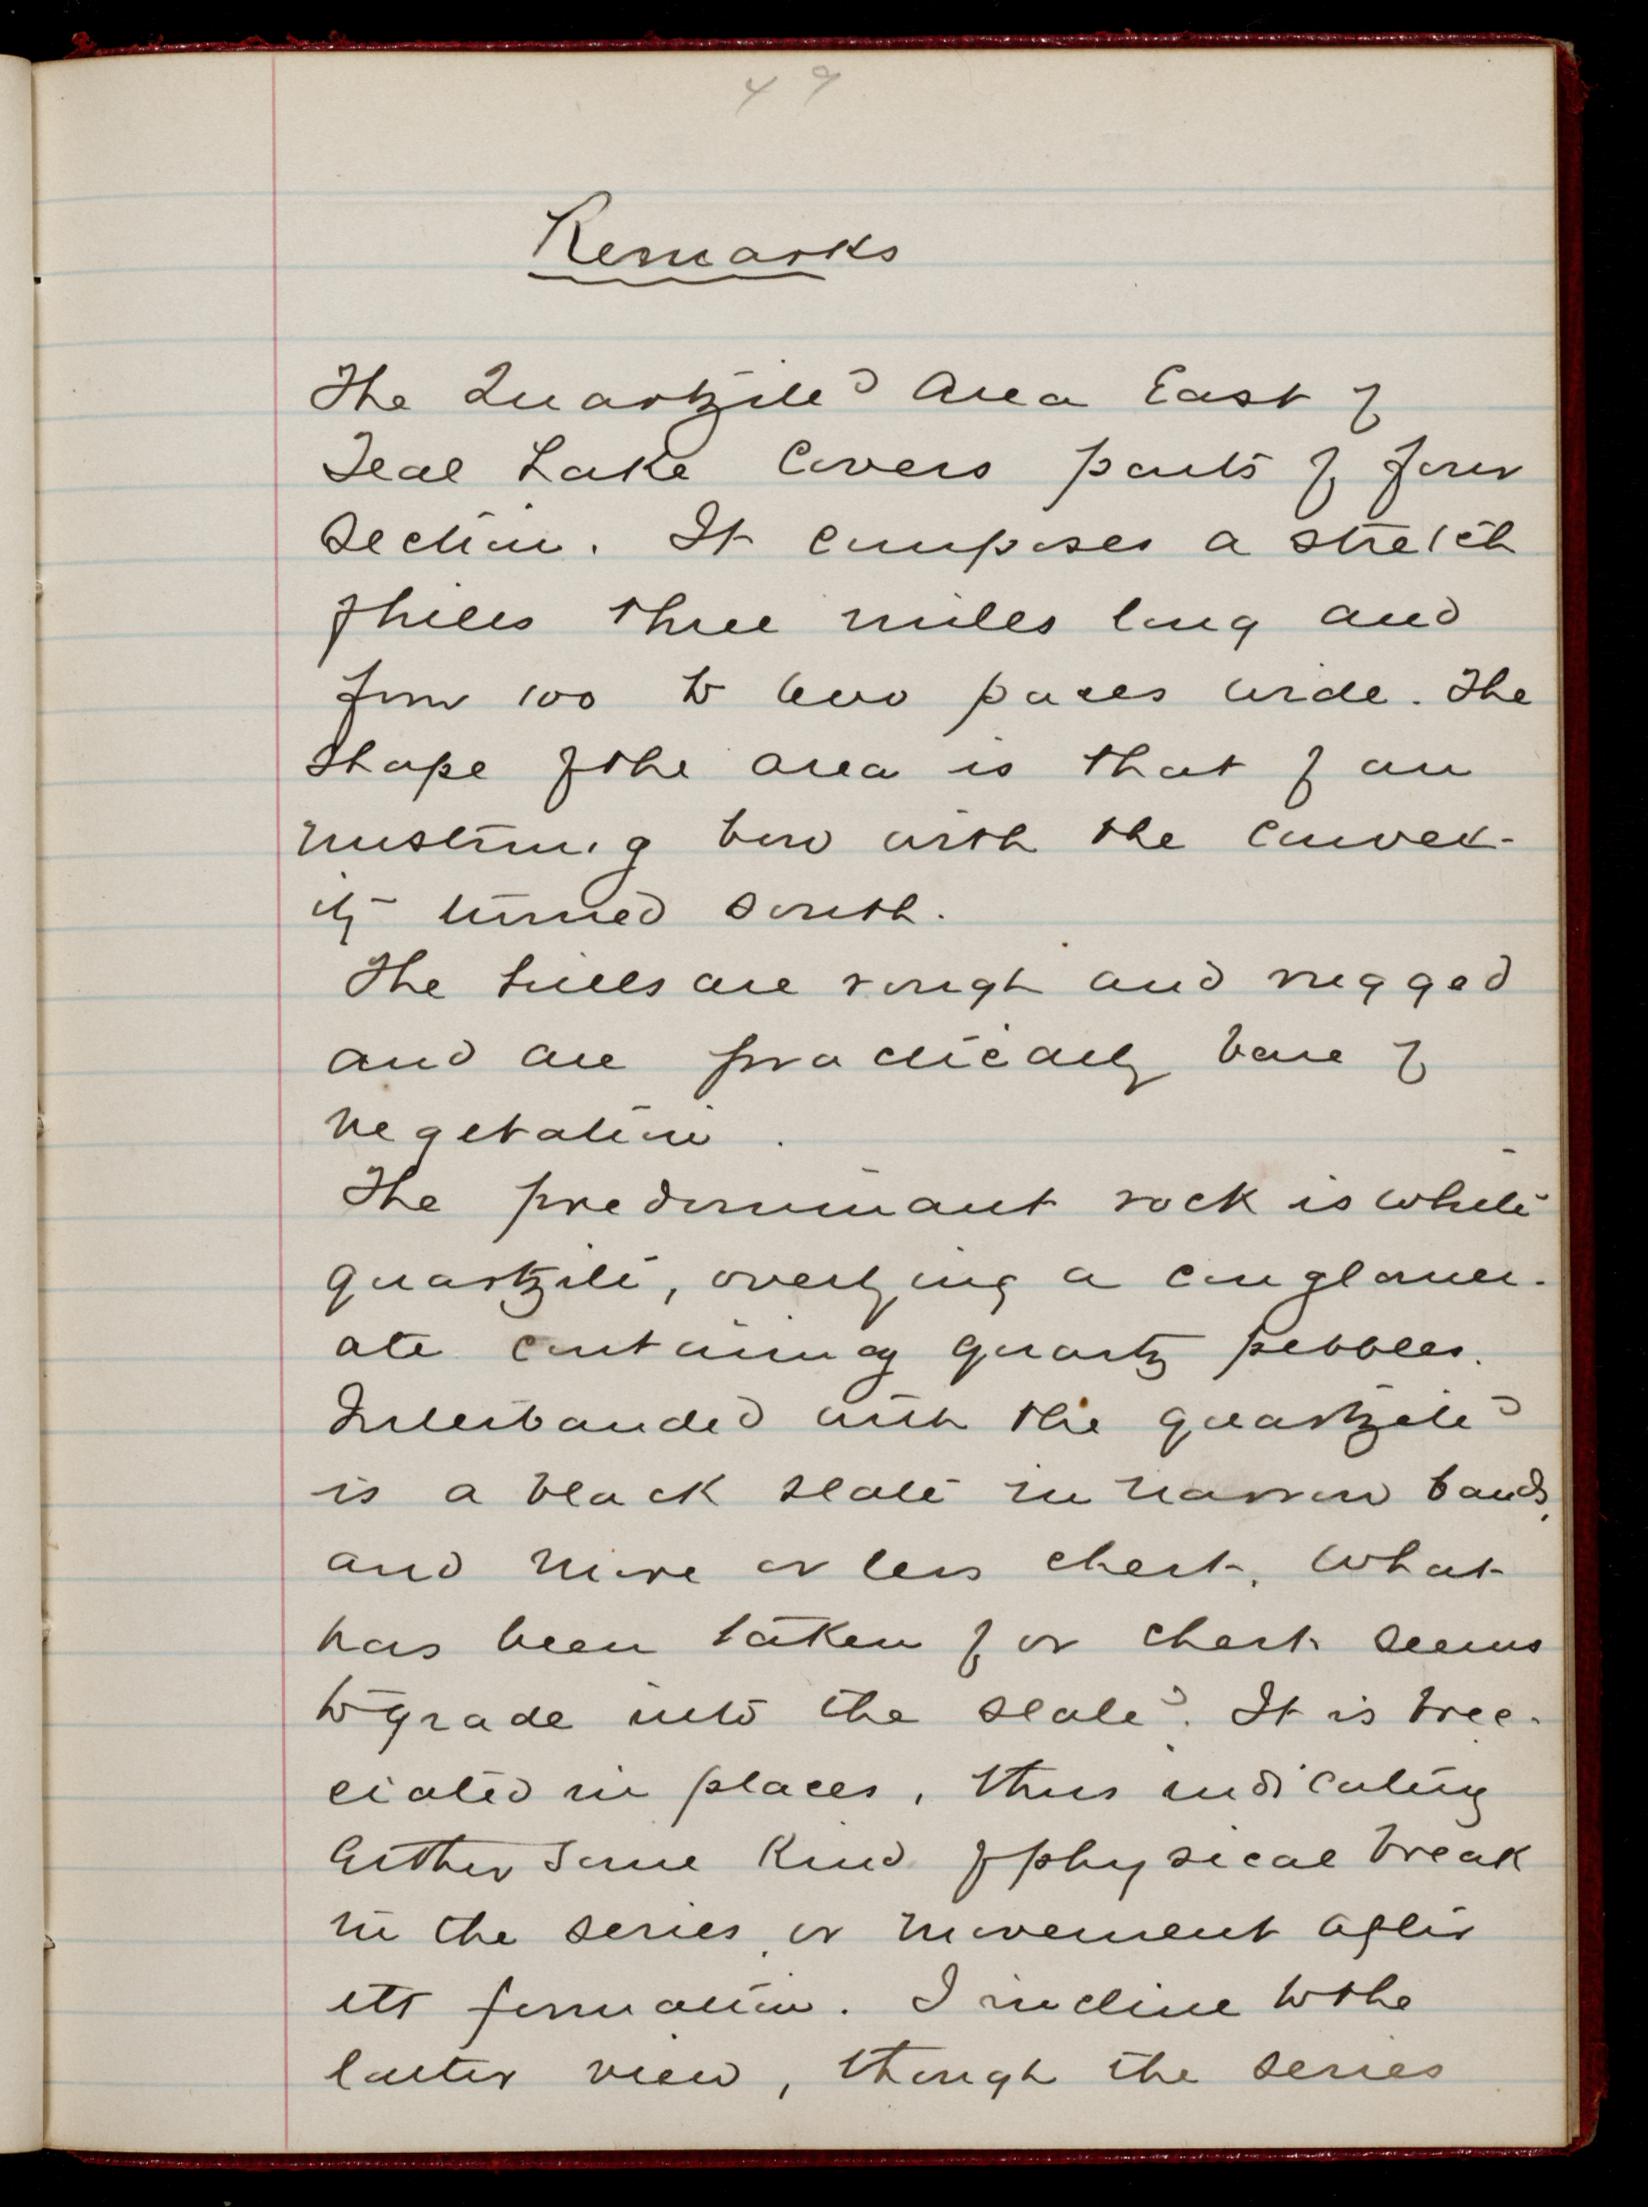 49
Remarks
The Quartzite Area East of
Teal Lake Covers parts of four
Section. It composes a stretch
of hills three miles long and
from 100 to paces wide. The
shape of the area is that of an
bow with the convex-
ity turned south.
The hills are rough and rugged
and are practically bare of
vegetation.
The predominant rock is white
quartzite, overlying a conglomer-
ate containing quartz pebbles.
Interbanded with the quartzite
is a black slate in narrow bands,
and more or less chert. What
has been taken for chert seems
to grade into the slate. It is brec-
ciated in places, thus indicating
Either some kind of physical break
in the series, or movement after
its formation. I incline to the
latter view, though the series